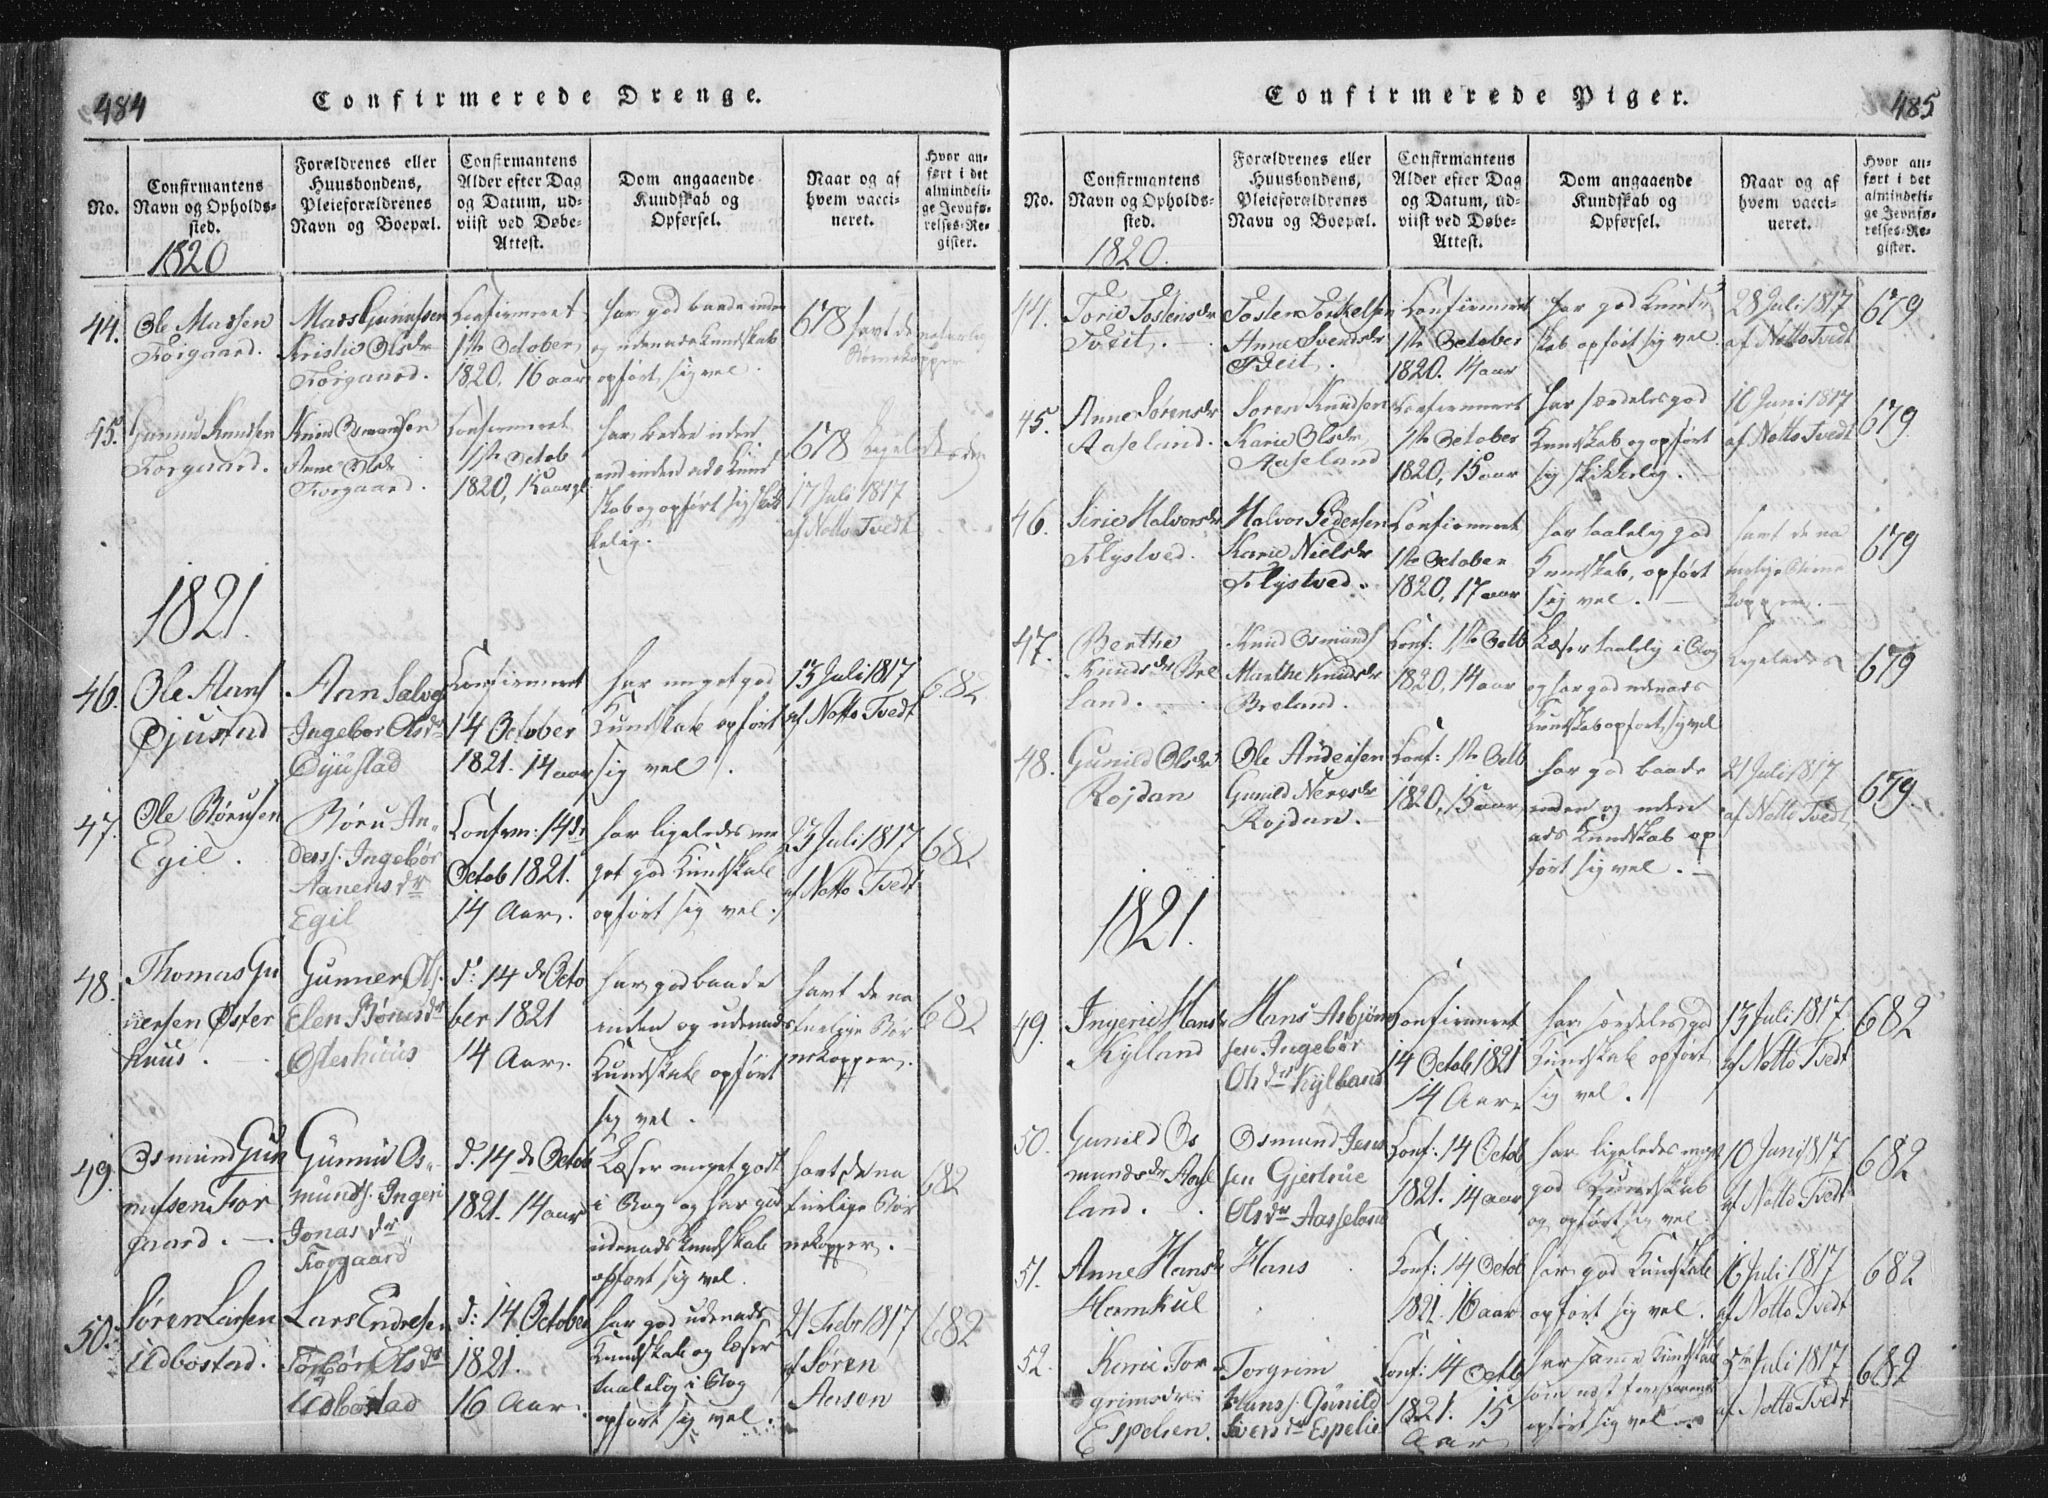 484
Confirmerede Drenge.
No.
Confirmantens
Navn og Opholds-
sted.
Forældrenes eller
Huusbondens,
Pleieforældrenes
Navn og Boepæl.
Confirmantens
Alder efter Dag
og Datum, ud-
viist ved Døbe-
Attest.
Dom angaaende
Kundskab og
Opførsel.
Naar og af
hvem vacci-
neret.
Hvor an-
ført i det
almindeli-
ge Jevnfø-
relses-Re-
gister.
1820
44.
Ole Madsen
Torgaard.
Mads Gunufsen
Kristie Olsdr
Torgaard.
Confirmeret
1ste October
1820. 16 aar
har god baade inden
og udenads Kundskab
opført sig vel.
678
havt de naturlig
Børnekopper
45.
Gunnu Knudsen
Torgaard.
Knud Osmunsen
Anne Olsdr
Torgaard.
Confirmeret
1ste Octob
1820, 15 aar
har bedre inden
end udenads Kund
skab og opført sig skik
kelig.
678
17 Juli 1817
af Notto Tvedt
1821.
46.
Ole Aans
Øjustad
Aan Salves
Ingebor Olsdr
Øyustad
Confirmeret
14 October
1821. 14 aar
har meget god
Kundskab opført
sig vel.
13 Juli 1817
af Notto Tvedt
682
47.
Ole Børusen
Egil.
Børu An-
ders. Ingebør
Aanensdr
Egil
Confirm: 14de
Octob 1821.
14 Aar.
har ligeledes me
get god Kundskab
opført sig vel.
23 Juli 1817
af Notto Tvedt
682
48.
Thomas Gu
nersen Øster
huus.
Gunner Ols.
Elen Børusdr
Osterhuus
d: 14de Octo
ber 1821
14 Aar.
har god baade
inden og udenads
Kundskab opført
sig vel.
havt de na
turlige Bør
nekopper.
682
49.
Osmund Gun
nufsen Tor
gaard.
Gunnu Os-
munds. Ingeri
Jonasdr
Torgaard
d. 14de Octob
1821. 14 aar
Læser meget godt
i Bog og har god
udenads Kundskab
opført sig vel.
havt de na
turlige Bør
nekopper.
682
50.
Søren Larsen
Udbostad.
Lars Endresen
Torbør Olsdr
Udbostad
d: 14 October
1821.
16 Aar.
har god udenads
Kundskab og læser
taalelig i Bog
opført sig vel.
21 Febr 1817
af Søren
Aasen
682
485
Confirmerede Piger.
No.
Confirmantens
Navn og Opholds-
sted.
Forældrenes eller
Huusbondens,
Pleieforældrenes
Navn og Boepæl.
Confirmantens
Alder efter Dag
og Datum, ud-
viist ved Døbe-
Attest.
Dom angaaende
Kundskab og
Opførsel.
Naar og af
hvem vacci-
neret.
Hvor an-
ført i det
almindeli-
ge Jevnfø-
relses-Re-
gister.
1820.
44.
Torie Tostensdr
Tveit.
Tosten Torkelsen
Anne Svendsdr
Tveit.
Confirmeret
1ste October
1820. 14 aar
har god Kund-
skab opført sig vel.
28 Juli 1817
af Notto Tvedt
679
45.
Anne Sørensdr
Aaseland.
Soren Knudsen
Karie Olsdr
Aaseland
Confirmeret
1ste October
1820, 15 aar
har særdeles god
Kundskab og opført
sig skikkelig.
10 Juni 1817
af Notto Tvedt
679
46.
Sirie Halvorsdr
Flystved.
Halvor Pedersen
Karie Nielsdr
Flystved.
Confirmeret
1ste October
1820, 17 aar
har taalelig god
Kundskab, opført
sig vel.
havt de na
turlige Børne
kopper.
679
47.
Berthe
Knudsdr Bre
land.
Knud Osmunds
Marthe Knudsdr
Breland.
Conf: 1ste Octb
1820, 14 aar
Læser taalelig i Bog
og har god udenads
Kundskab opført sig vel
Ligeledes
679
48.
Gunild Olsdr
Rojdan
Ole Andersen
Gunild Neresdr
Rojdan.
Conf: 1ste Octb
1820, 15 aar
har god baade
inden og uden
ads Kundskab op
ført sig vel.
21 Juli 1817
af Notto Tvedt
679.
1821.
49.
Ingerie Hansdr
Kylland
Hans Asbjøns
sen Ingebør
Olsdr Kylland
Confirmeret
14 Octob 1821
14 Aar.
har særdeles god
Kundskab opført
sig vel.
13 Juli 1817
af Notto Tvedt
682
50.
Gunild Os
mundsdr Aase
land.
Osmund Jens
sen Gjertrue
Olsdr Aasseland
Conf: 14 Octob
1821. 14 aar
har ligeledes meget
god Kundskab
og opført sig vel
10 Juni 1817
af Notto Tvedt
682
51.
Anne Hansdr
Homkul
Hans
Conf: 14 Octob
1821. 16 aar
har god Kundskab
opført sig vel.
16 Juli 1817
af Notto Tvedt
682
52.
Karie Tor
grimsdr
Espelien.
Torgrim
Hans. Gunild
Iversdr Espelie
Conf: 14 Octb
1821. 15
Aar
har samme Kundskab
som næst foregaaende
opført sig vel
5te Juli 1817
af Notto Tvedt
682